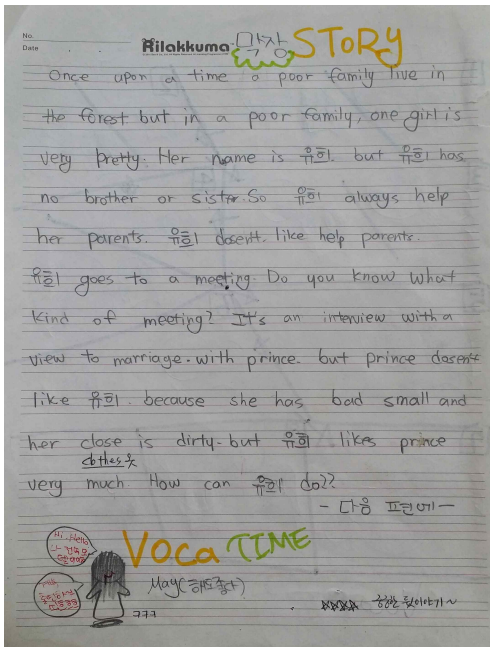 No.
Date
Rilakkuma 막장 STORY
Once upon a time a poor family live in
the forest but in a poor family, one girl is
very pretty. Her name is 유희. but 유희 has
no brother or sister. So 유희 always help
her parents. 유희 dosen't. like help parents.
유희 goes to a meeting. Do you know what
kind of meeting? It's an interview with a
view to marriage. with prince. but prince dosen't
like 유희. because she has bad small and
her close is dirty. but 유희 likes prince
clothes 옷
very much. How can 유희 do??
- 다음 프린에 -
VOCA TIME
Hi. Hello
May(해도좋다)
ㅋㅋㅋ
궁금한 뒷이야기~